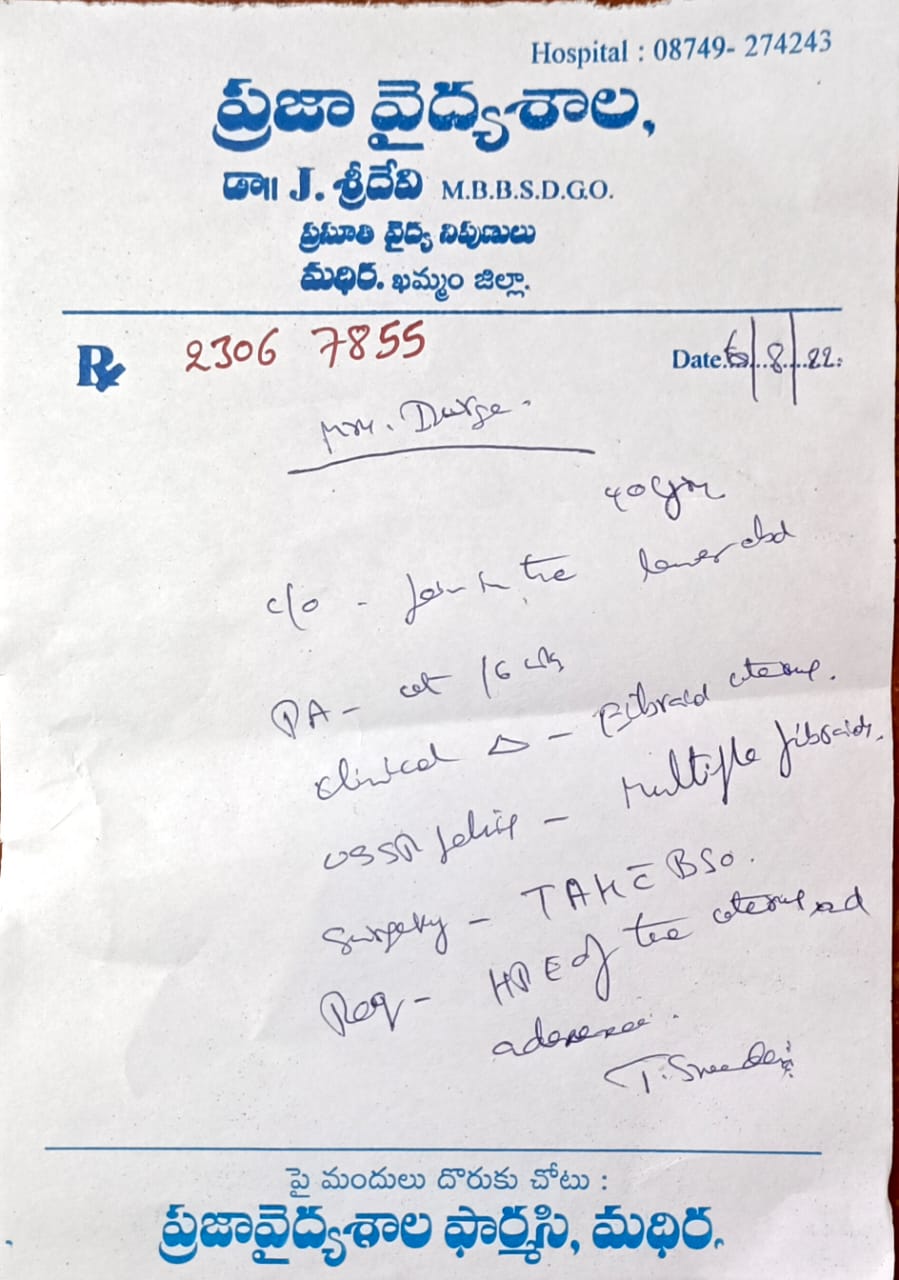 Hospital : 08749- 274243
ప్రజా వైద్యశాల,
డా౹౹ J. శ్రీదేవి M.B.B.S.D.G.O.
ప్రసూతి వైద్య నిపుణులు
మధిర. ఖమ్మం జిల్లా.
Rx 2306 7855 Date. 8 22:
Durge.
40
c/o - in the lower abd
PA - ut 16 wks
Clinical △ - Fibroid uterus.
USSR pelvis - Multiple fibroids.
Surgery - TAH c̄ BSO.
Req - HPE of the uterus and
adenexae.
పై మందులు దొరుకు చోటు :
ప్రజావైద్యశాల ఫార్మసి, మధిర.